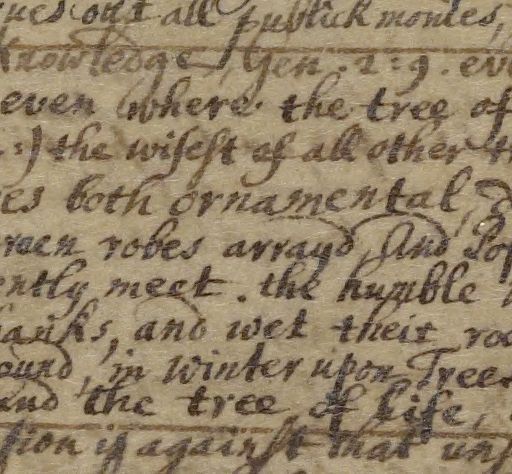 out all publick monies,
Knowledge, Gen. 2:9. eve
even where the tree of
:) the wisest of all other
es both ornamental,
robes arrayd, And
ently meet. the humble
banks, and wet their roo
ound, in winter upon Trees
and the tree of life,
sion is against that